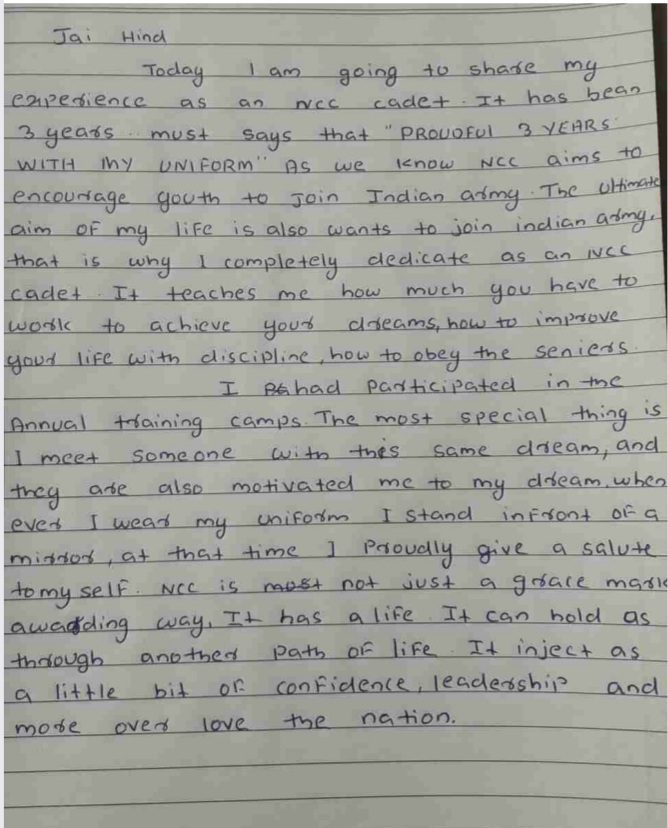 Jai Hind
Today I am going to share my
experience as an NCC cadet. It has bean
3 years. must says that "PROUDFUL 3 YEARS
WITH MY UNIFORM" AS we know NCC aims to
encourage youth to Join Indian army. The Ultimate
aim OF my life is also wants to join indian army,
that is why I completely dedicate as an NCC
cadet. It teaches me how much you have to
work to achieve your dreams, how to improve
your life with discipline, how to obey the seniers.
I had participated in the
Annual training camps. The most special thing is
I meet someone with this same dream, and
they are also motivated me to my dream. when
ever I wear my uniform I stand infront of a
mirror, at that time I Proudly give a salute
to my self. NCC is not just a grace mark
awarding way, It has a life. It can hold as
through another path of life. It inject as
a little bit of confidence, leadership and
more over love the nation.